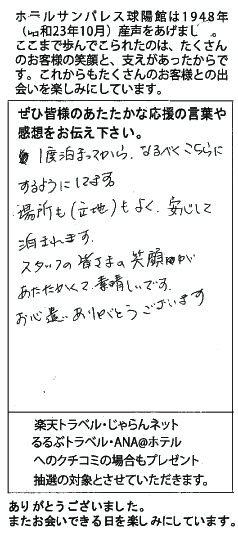 ホテルサンパレス球陽館は1948年
(昭和23年10月)産声をあげまし。
ここまで歩んでこられたのは、たくさん
のお客様の笑顔と、支えがあったからで
す。これからもたくさんのお客様との出
会いを楽しみにしています。
ぜひ皆様のあたたかな応援の言葉や
感想をお伝え下さい。
1度泊まってから、なるべくこちらに
するようにしてます。
場所も(立地)もよく、安心して
泊まれます。
スタッフの皆さまの笑顔が
あたたかくて、素晴しいです。
お心遣い ありがとうございます
楽天トラベル・じゃらんネット
るるぶトラベル・ANA@ホテル
へのクチコミの場合もプレゼント
抽選の対象とさせていただきます。
ありがとうございました。
またお会いできる日を楽しみにしています。